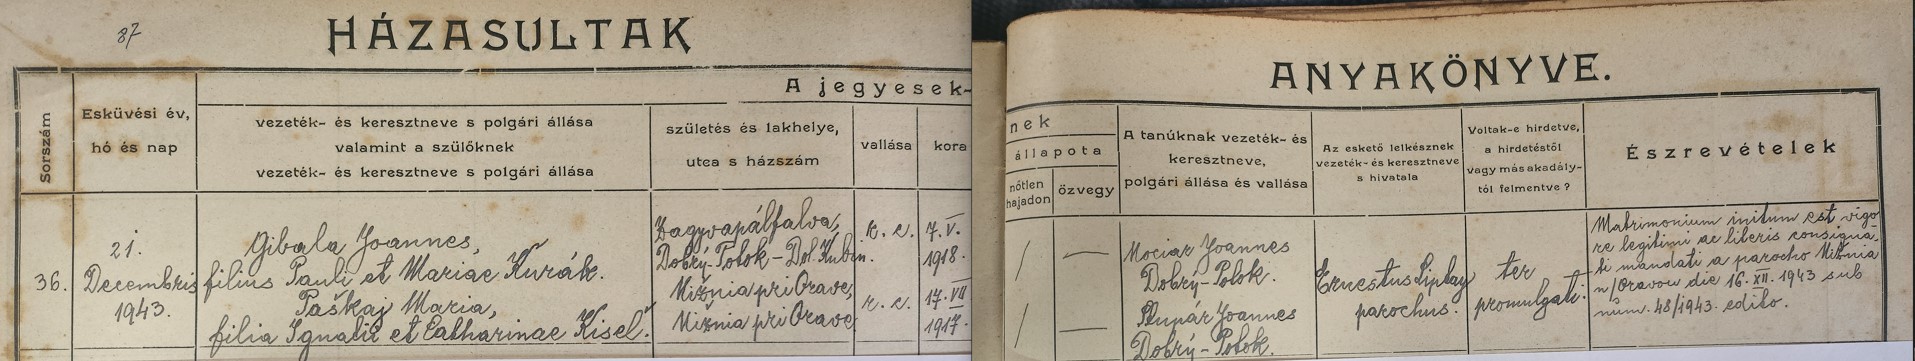 87
HÁZASULTAK
Sorszám
Esküvési év,
hó és nap
A jegyesek-
vezeték- és keresztneve s polgári állása
valamint a szülőknek
vezeték- és keresztneve s polgári állása
születés és lakhelye,
utca s házszám
vallása
kora
36.
21.
Decembris
1943.
Gibala Joannes,
filius Pauli et Mariae Kurák.
Paškaj Maria,
filia Ignatii et Catharinae Kisel.
Zagyvapálfalva,
Dobrý-Potok-Dol. Kubín.
Nižnia pri Orave,
Nižnia pri Orave
r. c.
r. c.
7. V.
1918.
17. VII
1917.
ANYAKÖNYVE.
nek
állapota
nőtlen
hajadon
özvegy
A tanúknak vezeték- és
keresztneve,
polgári állása és vallása
Az eskető lelkésznek
vezeték- és keresztneve
s hivatala
Voltak-e hirdetve,
a hirdetéstől
vagy más akadály-
tól felmentve?
Észrevételek
/ —
/ —
Mociar Joannes
Dobrý-Potok.
Joannes
Dobrý-Potok.
Ernestus Liptay
parochus.
ter
promulgati.
Matrimonium initum est vigo-
re legitimi ac literis consigna-
ti mandati a parocho Nižnia
n/Oravou die 16. XII. 1943 sub
num. 48/1943. edito.